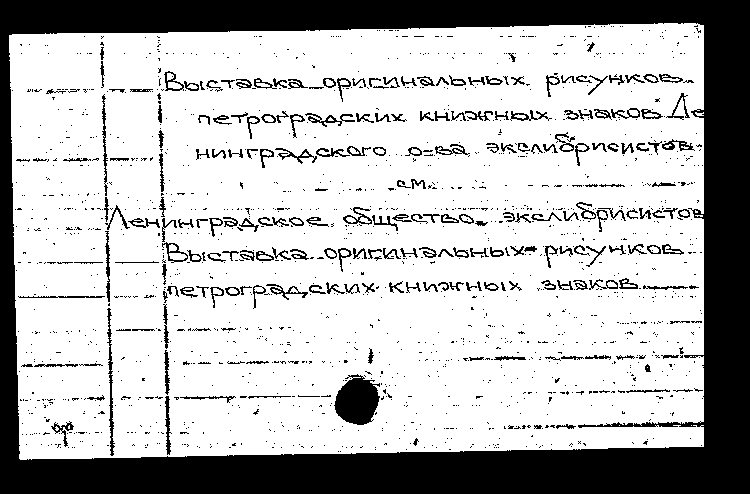 Выставка оригинальных рисунков
петроградских книжных знаков Ле
нинградского о-ва экслибрисистов.
см.
Ленинградское общество экслибрисистов
Выставка оригинальных рисунков
петроградских книжных знаков